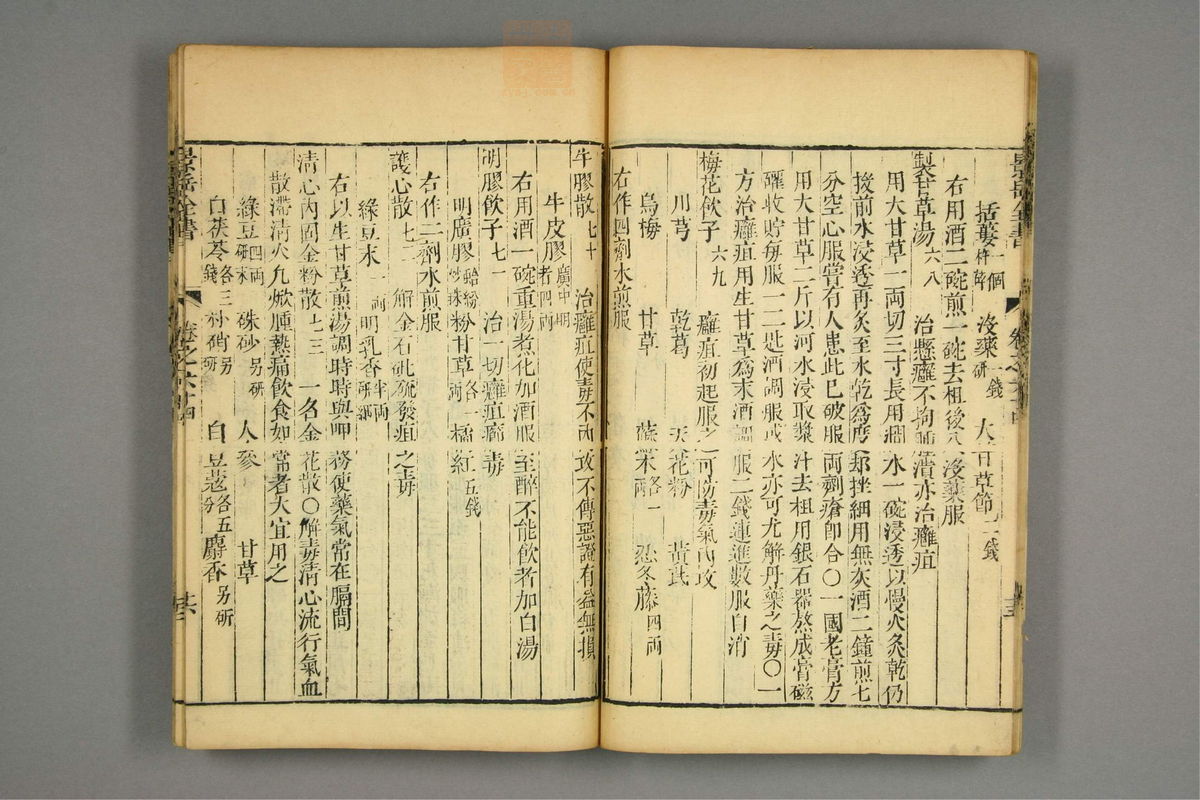 景岳全書 卷之六十四
括蔞一個杵乾 沒藥一錢研 大甘草節二錢
右用酒二碗煎一碗去柤後入沒藥服
製甘草湯六八 治懸癰不拘腫潰亦治癰疽
用大甘草一両切三寸長用澗水一碗浸透以慢火炙乾仍
投前水浸透再炙至水乾爲度却挫細用無灰酒二鐘煎七
分空心服嘗有人患此已破服両劑瘡卽合〇一國老膏方
用大甘草二斤以河水浸取漿汁去柤用銀石器熬成膏磁
礶收貯每服一二匙酒調服或水亦可尤解丹藥之毒〇一
方治癰疽用生甘草爲末酒調服二錢連進數服自消
梅花飲子六九 癰疽初起服之可防毒氣內攻
川芎 乾葛 天花粉 黃芪
烏梅 甘草 蘇木各一両 忍冬藤四両
右作四劑水煎服
牛膠散七十 治癰疽使毒不內攻不傳惡證有益無損
牛皮膠廣中明者四両
右用酒一碗重湯煮化加酒服至醉不能飲者加白湯
明膠飲子七一 治一切癰疽癤毒
明廣膠蛤粉炒珠 粉甘草各一両 橘紅五錢
右作二劑水煎服
護心散七二 解金石砒硫發疽之毒
綠豆末一両 明乳香半両研細
右以生甘草煎湯調時時與呷務使藥氣常在膈間
清心內固金粉散七三 一名金花散〇解毒清心流行氣血
散滯清火凡焮腫熱痛飲食如常者大宜用之
綠豆四両研末 硃砂另研 人參 甘草
白茯苓各三錢 朴硝另研 白豆蔻各五分 麝香另研
景岳全書